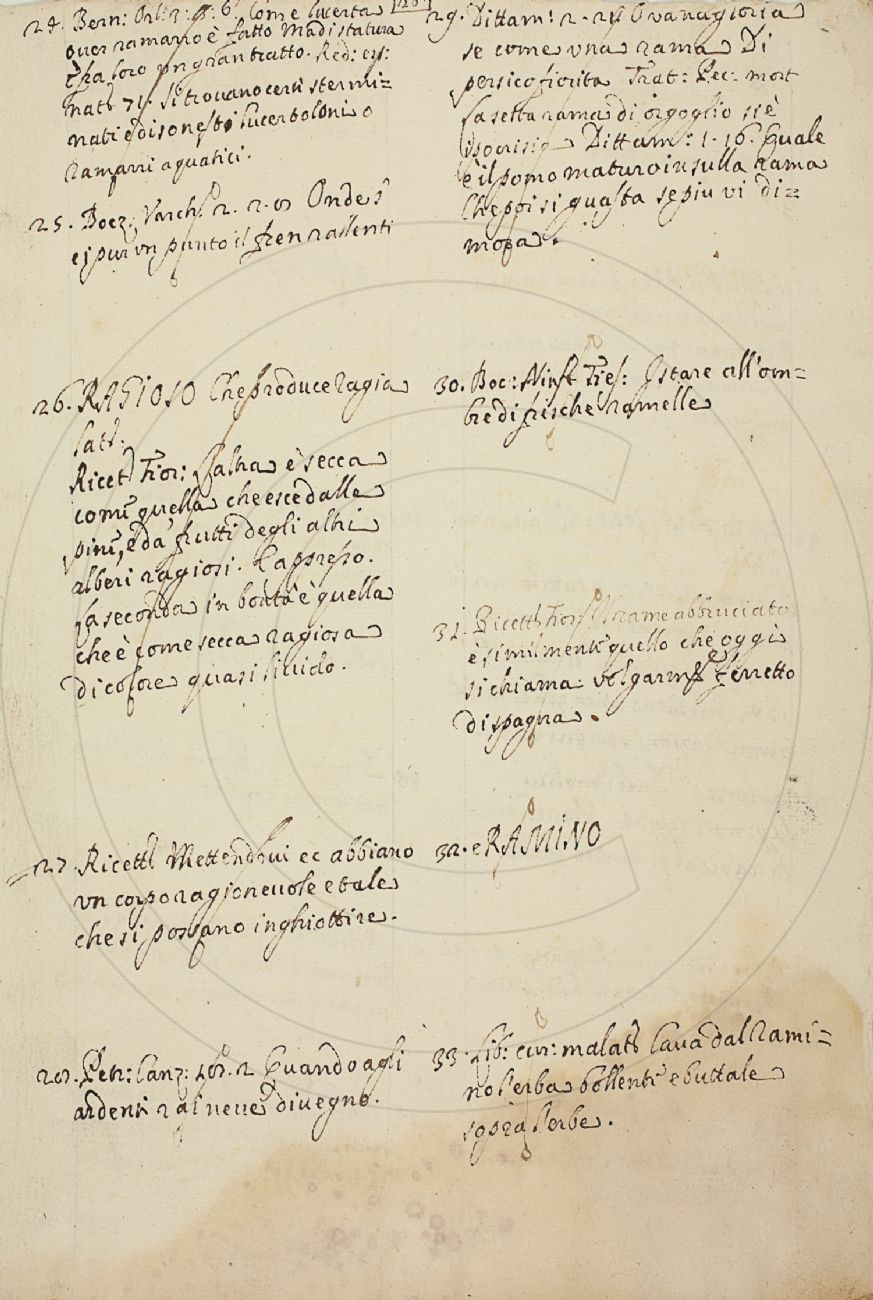 24. Bern: Orl: 2. 6. Come lucerta
over ramarro è fatto Ma di statura
è fra loro un gran tratto. Red: esp:
nat: 71. Si trovano certi stermi=
nati e disonesti lucertoloni o
Ramarri aquatici.
25. Boez: Varch: 2. 2. Onde s'
ei pur un punto il fren rallenti
26. RAGIOSO Che produce ragia
lat:
Ricet: Fior: l'altra è secca
come quella che esce dalle
pine, e da frutti degli altri
alberi ragiosi. E appresso.
la seconda in bontà è quella
che è come secca ragiosa
di colore quasi livido.
27. Ricett: Mettendovi ec abbiano
un corpo ragionevole e tale
che si possano inghiottire.
28. Petr: Canz: 2 Quando agli
ardenti rai neve divegno.
29. Dittam: 2. 24 O vanagloria
se come una rama Di
persico fiorita Trat: Pec: mort
la setta rama di orgoglio si è
ipocrisia Dittam: 1. 16. Quale
è il pomo maturo in sulla rama
Che poi si guasta se piu vi di=
mora.
30. Boc: Ninf: Fies: Istare all'om=
bre di fresche ramelle
31. Ricett: Fior: Il rame abbruciato
è similmente quello che oggi
si chiama volgarmte ferretto
di spagna.
32. e RAMINO
33. Lib: cur: malatt: Cava dal Rami=
no l'erba bollente e buttale
sopra l'erbe.